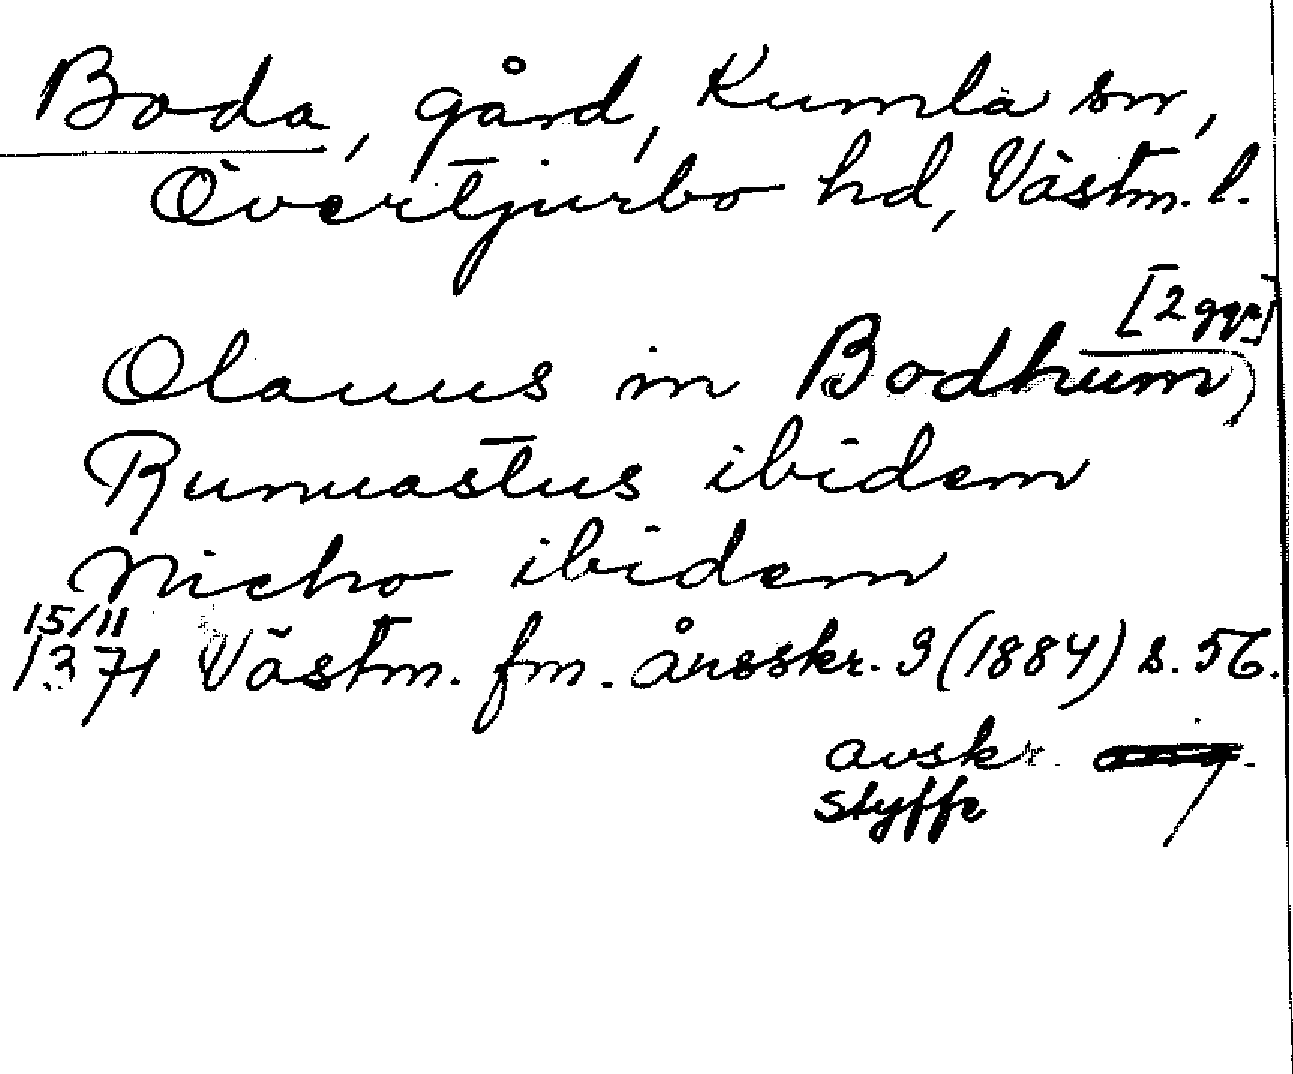 Boda, gård, Kumla sn,
Övertjurbo hd, Västm. l.
[2 ggr]
Olauus in Bodhum,
Runuastus ibidem
Nicho ibidem
15/11
1371 Västm. fm. årsskr. 3 (1884) s. 56.
avskr.
Styffe